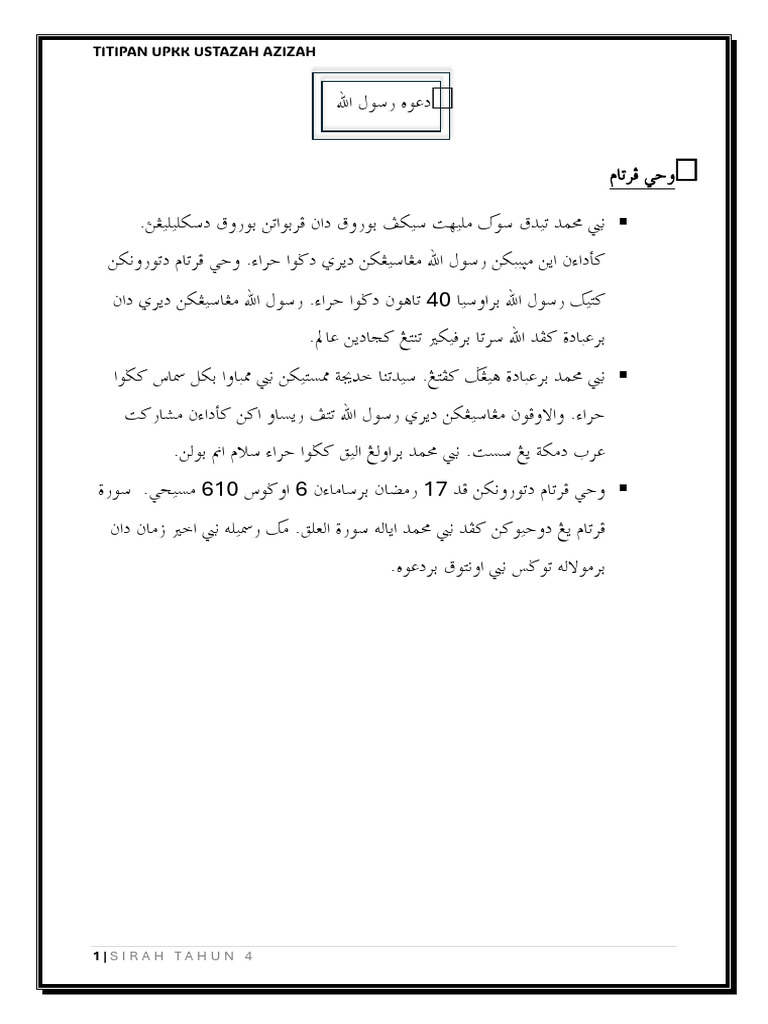 TITIPAN UPKK USTAZAH AZIZAH
دعوه رسول الله
وحي ڤرتام
نبي محمد تيدق سوك مليهت سيكڤ بوروق دان ڤربواتن بوروق دسكليليڠڽ.
كأداءن اين مڽببكن رسول الله مڠاسيڠكن ديري دݢوا حراء. وحي ڤرتام دتورونكن
كتيک رسول الله براوسيا 40 تاهون دݢوا حراء. رسول الله مڠاسيڠكن ديري دان
برعبادة كڤد الله سرتا برفيكير تنتڠ كجادين عالم.
نبي محمد برعبادة هيڠݢ كڤتڠ. سيدتنا خديجة ممستيكن نبي ممباوا بكل سماس كݢوا
حراء. والاوڤون مڠاسيڠكن ديري رسول الله تتڤ ريساو اكن كأداءن مشاركت
عرب دمكة يڠ سست. نبي محمد براولڠ اليق كݢوا حراء سلام انم بولن.
وحي ڤرتام دتورونكن ڤد 17 رمضان برساماءن 6 اوݢوس 610 مسيحي. سورة
ڤرتام يڠ دوحيوكن كڤد نبي محمد اياله سورة العلق. مک رسميله نبي اخير زمان دان
برمولاله توݢس نبي اونتوق بردعوه.
1 | SIRAH TAHUN 4